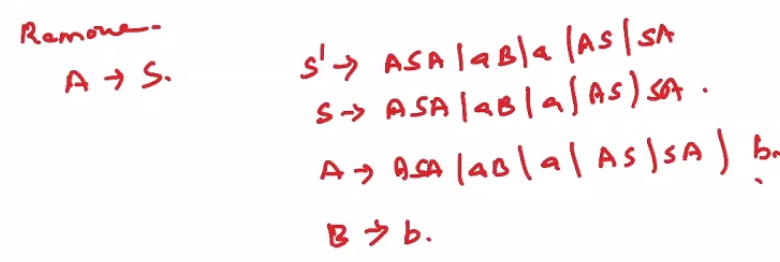 Remove
A → S.
S' → ASA | aB | a | AS | SA
S → ASA | aB | a | AS | SA .
A → ASA | aB | a | AS | SA | b.
B → b.